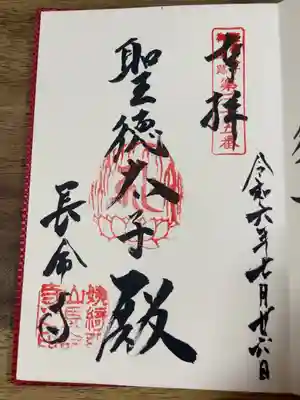 奉拝
第
番
聖徳太子殿
長命寺
令和六年七月廿六日